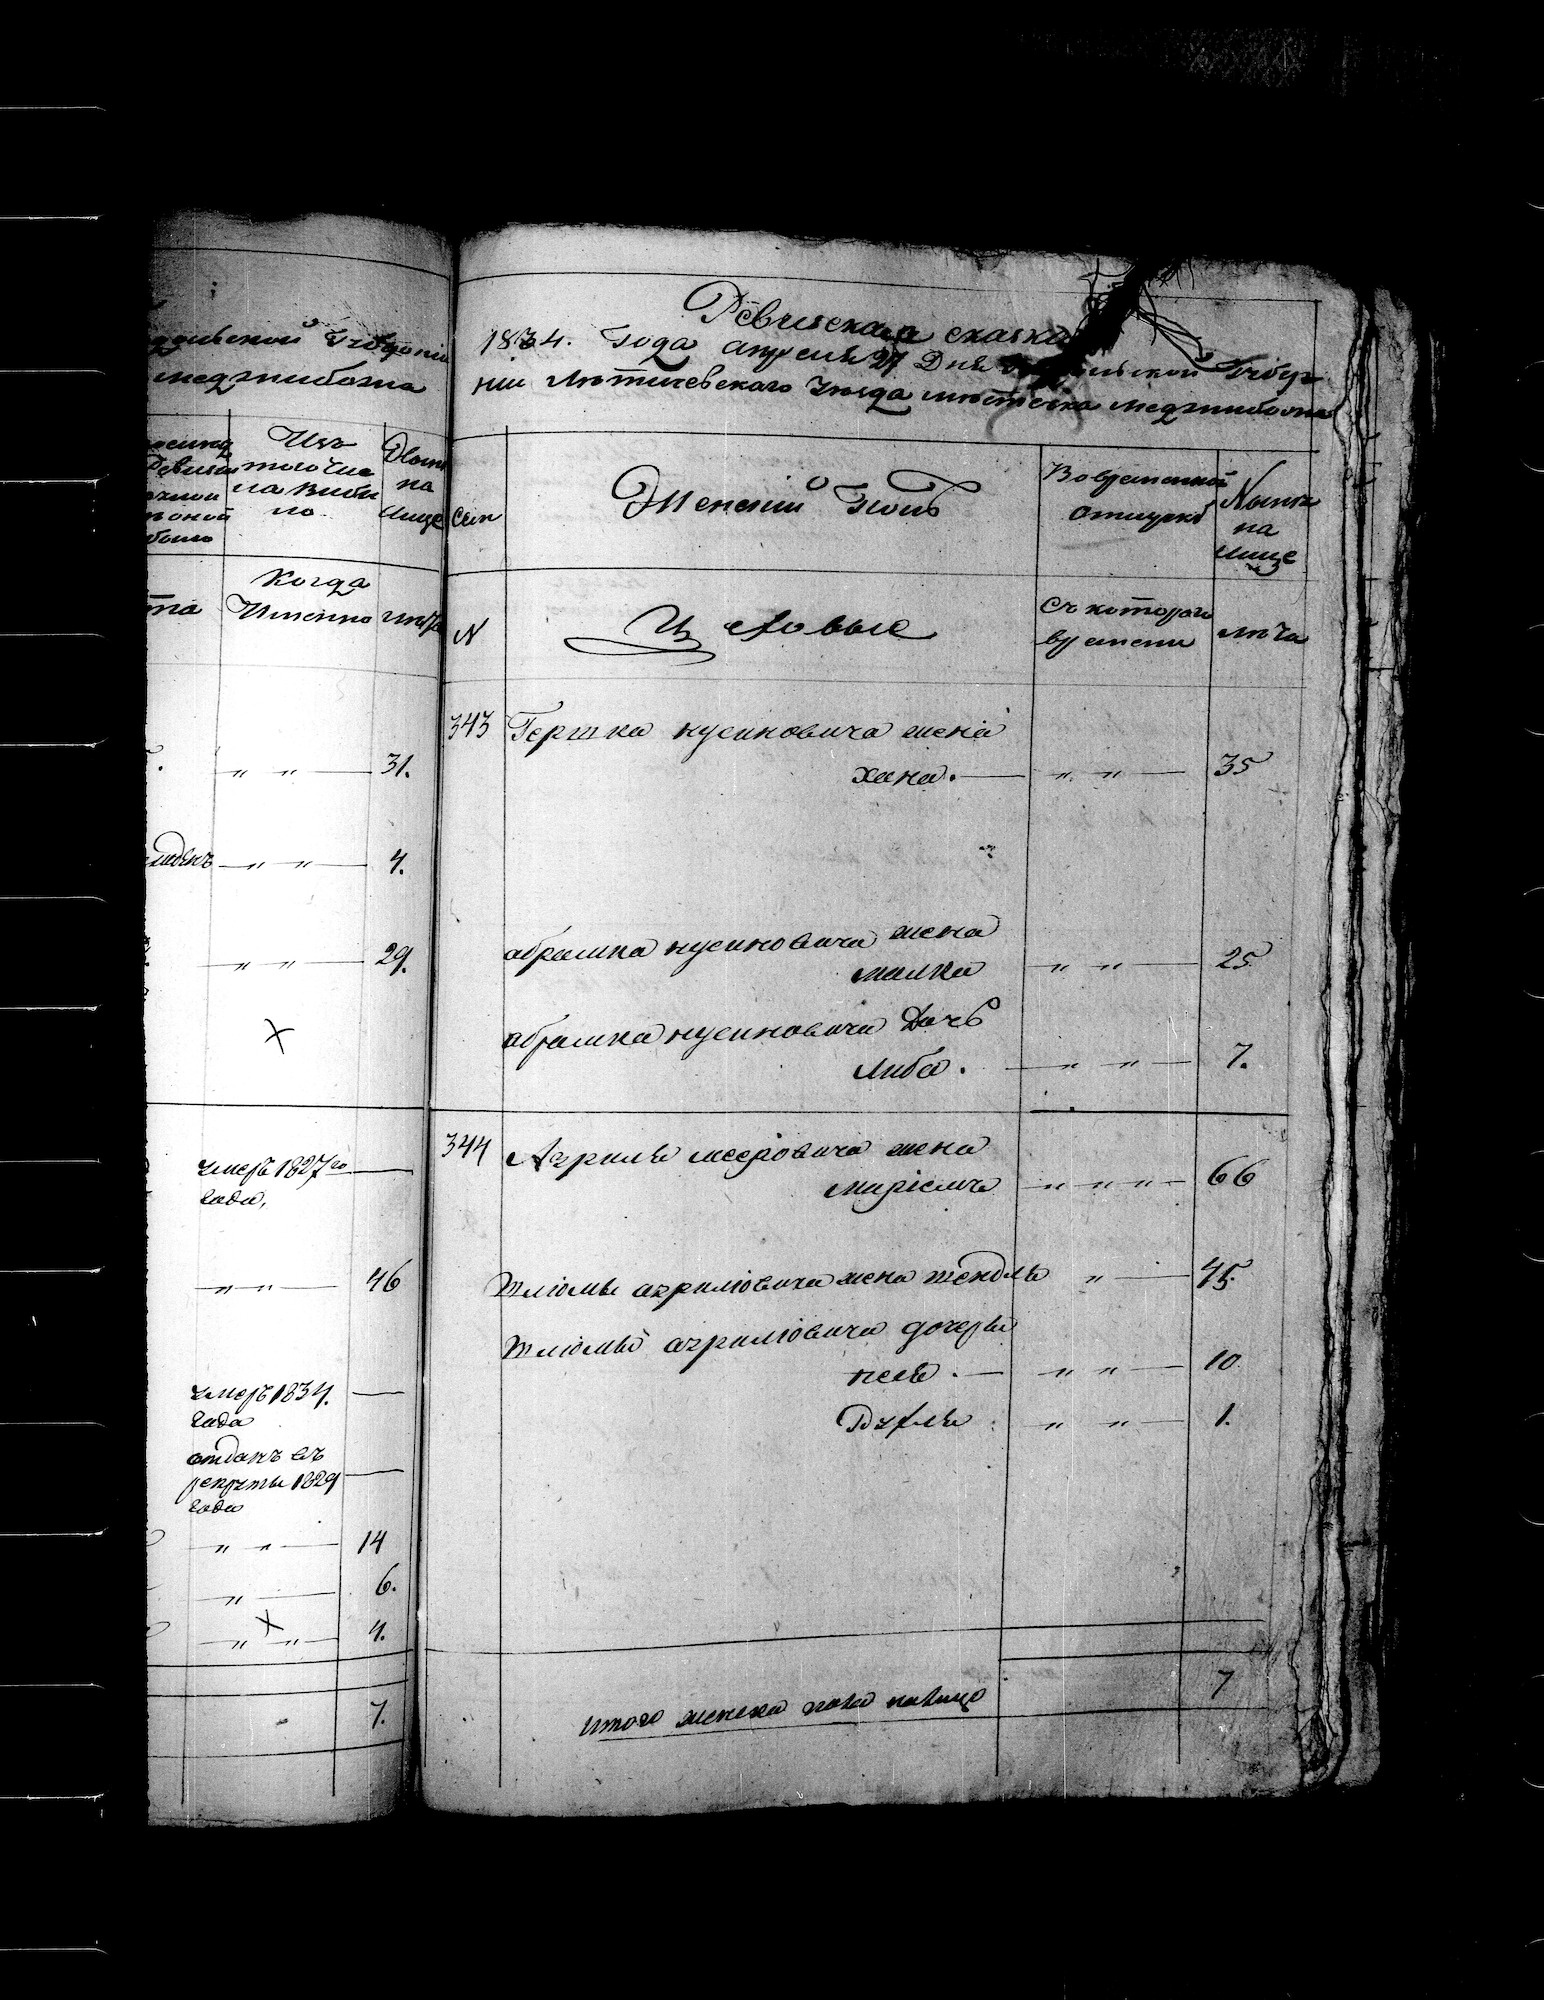 дольской Губерніи
медзибожа
Изъ
того чис
ла выбы
ло
Ныне
на
лице
Когда
Именно
лѣта
31.
4.
29.
умеръ 1827го
года,
46
умеръ 1834.
года
отданъ въ
рекруты 1829
года
14
6.
4.
7.
Ревизская сказка
1834. Года апреля 27 Дня Подольской Губер
ніи Лѣтичевскаго Уѣзда мѣстечка медзибожа
Сем
Женскій Полъ
Во временной
отлучкѣ
Ныне
на
лице
N
Цеховые
Съ котораго
времени
лѣта
343 Гершка нусиновича жена
хана. — „ „ — 35
абрамка нусиновича жена
малка „ „ — 25
абрамка нусиновича Дочь
Либа. — „ „ — 7.
344 Азриля мееровича жена
маріемъ — „ „ „ — 66
Шлiомы азрилiовича жена шендля „ — 45.
Шлiомы азрилiовича дочери
песя. — „ „ — 10
Рухля „ „ — 1.
итого женска пола налицо 7